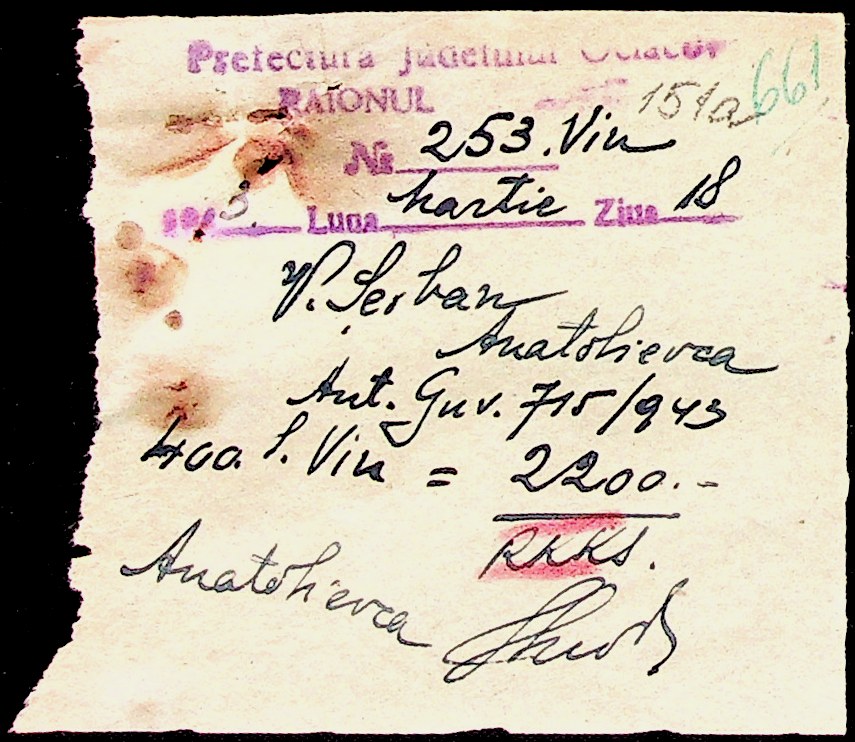 Prefectura Județului Oceacov
RAIONUL
151a 661
№ 253. Vin
194 3. Luna Martie Ziua 18
V. Șerban
Anatolievca
Aut. Guv. 715/943
400. l. Vin = 2200.-
RKKS.
Anatolievca